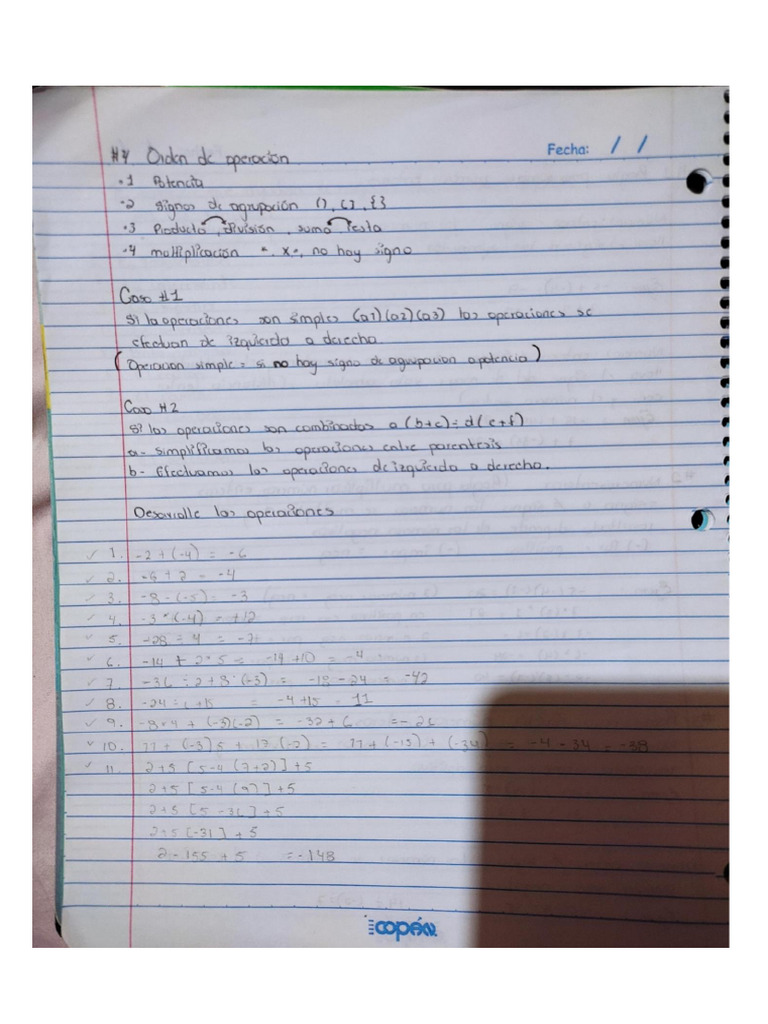 #4 Orden de operacion
Fecha: / /
.1 Potencia
.2 Signos de agrupación (), [], {}
.3 Producto, división, suma resta
.4 multiplicación ". x", no hay signo
Caso #1
Si la operaciones son simples (a1)(a2)(a3) las operaciones se
efectuan de izquierda a derecha
(Operacion simple = si no hay signo de agrupacion o potencia)
Caso #2
Si las operaciones son combinadas a(b+c)÷d(e+f)
a- simplificamos las operaciones entre parentesis
b- Efectuamos las operaciones de izquierda a derecha.
Desarrolle las operaciones
✓ 1. -2+(-4) = -6
✓ 2. -6+2 = -4
✓ 3. -8-(-5) = -3
✓ 4. -3·(-4) = +12
✓ 5. -28 ÷ 4 = -7
✓ 6. -14 + 2·5 = -14 +10 = -4
✓ 7. -36 ÷ 2+8·(-3) = -18 - 24 = -42
✓ 8. -24 ÷ 6 +15 = -4+15 = 11
✓ 9. -8·4 + (-3)(-2) = -32+6 = -26
✓ 10. 11 + (-3)5 + 17(-2) = 11+(-15)+(-34) = -4-34 = -38
✓ 11. 2+5[5-4(7+2)]+5
2+5[5-4(9)]+5
2+5[5-36]+5
2+5(-31]+5
2-155+5 = -148
copán